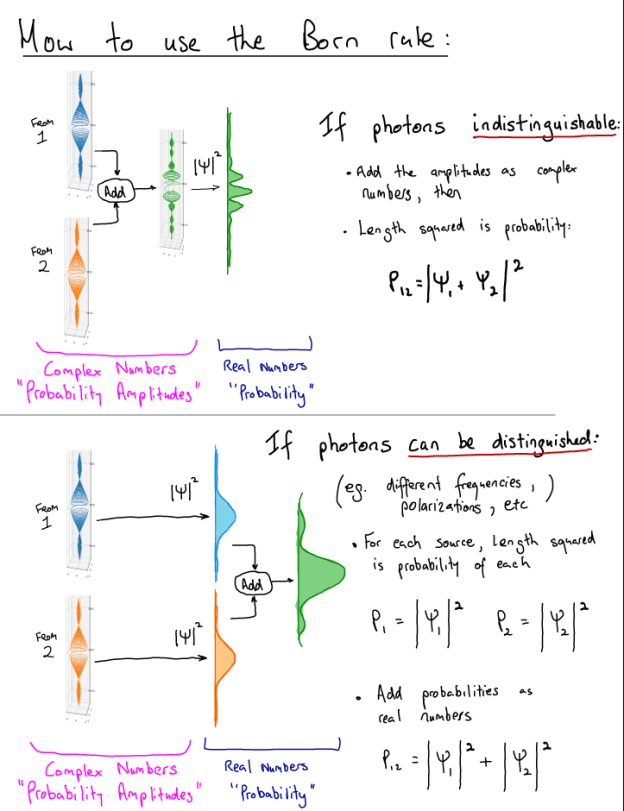 How to use the Born rule:
FROM
1
Add
|Ψ|²
FROM
2
If photons indistinguishable:
• Add the amplitudes as complex
numbers, then
• Length squared is probability:
P₁₂ = |Ψ₁ + Ψ₂|²
Complex Numbers
"Probability Amplitudes"
Real Numbers
"Probability"
If photons can be distinguished:
(eg. different frequencies,
polarizations, etc)
FROM
1
|Ψ|²
Add
FROM
2
|Ψ|²
• For each source, Length squared
is probability of each
P₁ = |Ψ₁|² P₂ = |Ψ₂|²
• Add probabilities as
real numbers
P₁₂ = |Ψ₁|² + |Ψ₂|²
Complex Numbers
"Probability Amplitudes"
Real Numbers
"Probability"